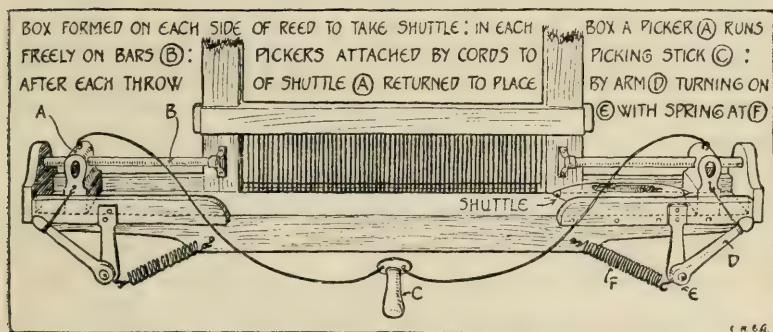 BOX FORMED ON EACH SIDE OF REED TO TAKE SHUTTLE: IN EACH BOX A PICKER Ⓐ RUNS
FREELY ON BARS Ⓑ: PICKERS ATTACHED BY CORDS TO PICKING STICK Ⓒ:
AFTER EACH THROW OF SHUTTLE Ⓐ RETURNED TO PLACE BY ARM Ⓓ TURNING ON
Ⓔ WITH SPRING AT Ⓕ
A
B
SHUTTLE
C
D
E
F